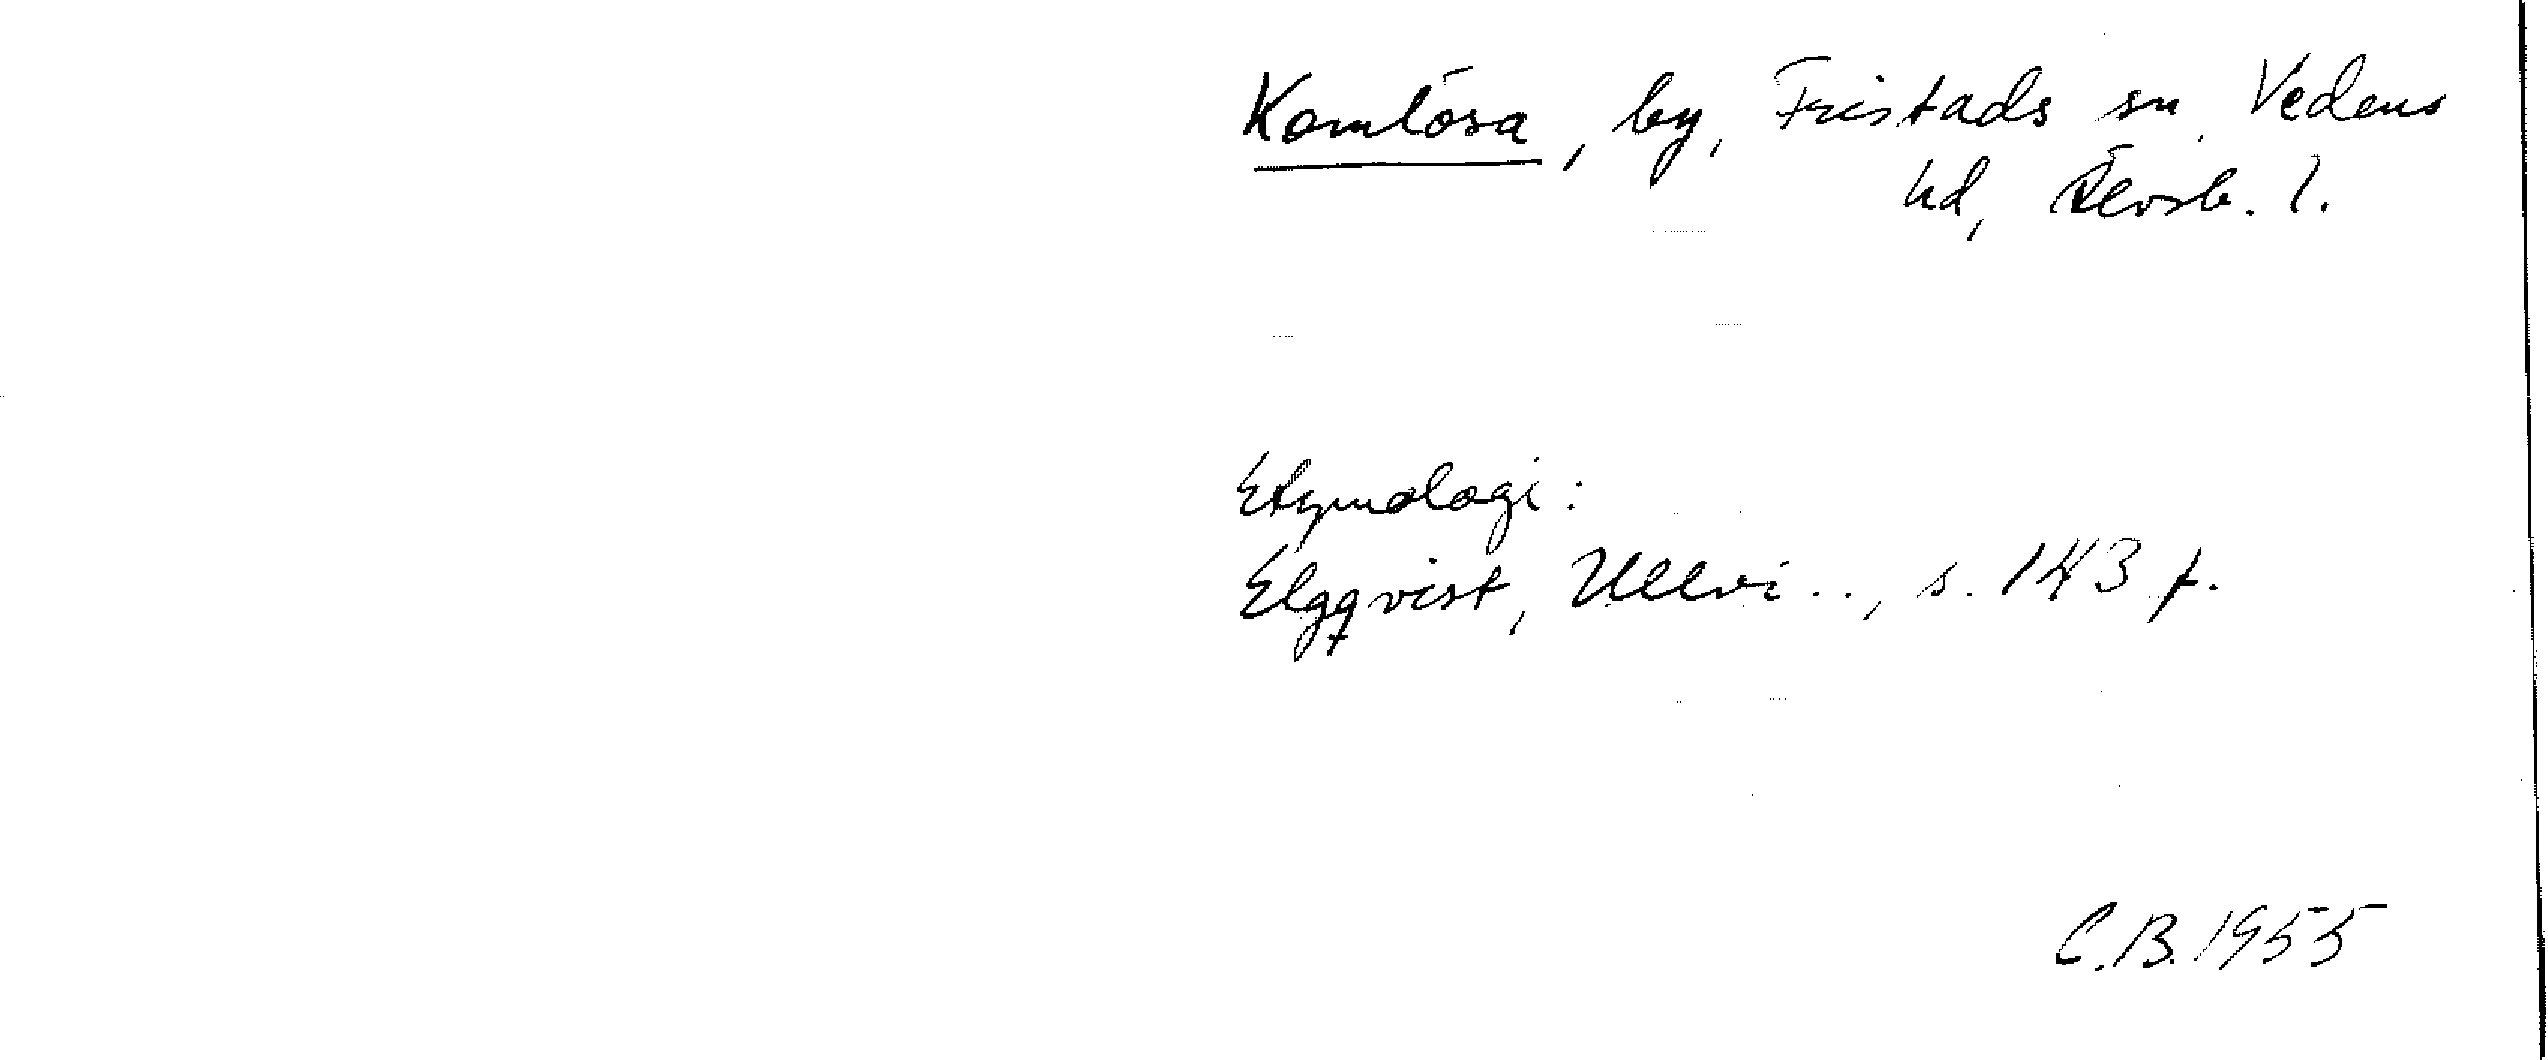 Komlösa, by, Fristads sn, Vedens
hd, Älvsb. l.
Etymologi:
Elgqvist, Ullvi.., s. 143 f.
C.B. 1955